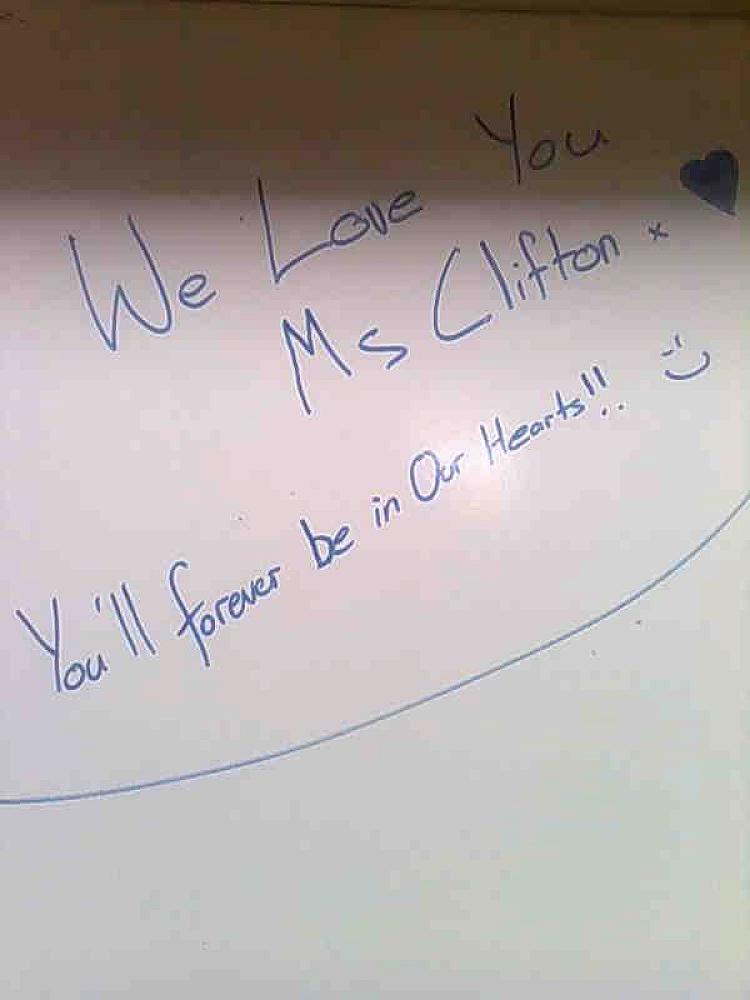 We Love You
Ms Clifton x
You'll forever be in Our Hearts!! :)